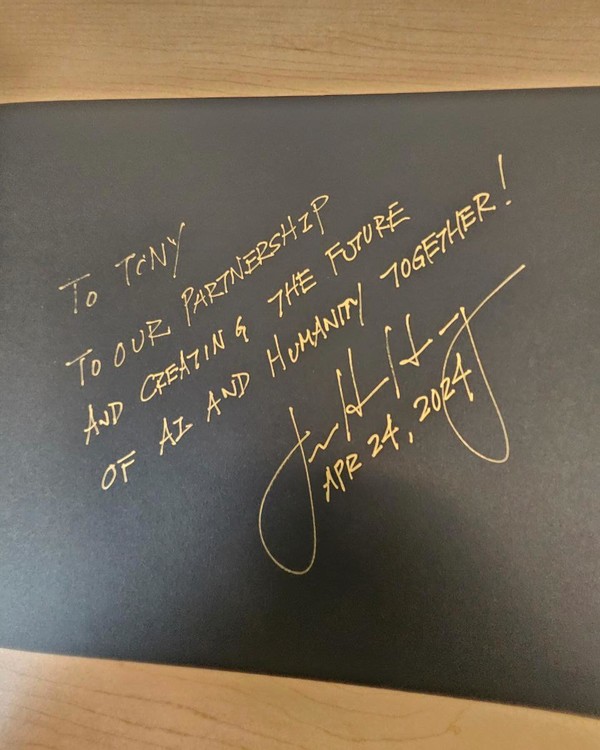 TO TONY
TO OUR PARTNERSHIP
AND CREATING THE FUTURE
OF AI AND HUMANITY TOGETHER!
APR 24, 2024